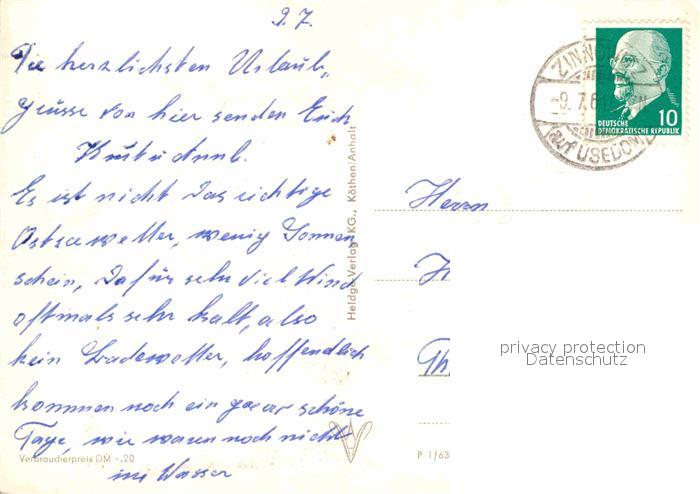 9.7.
Die herzlichsten Urlaubs-
grüsse von hier senden Euch
Kurt u. Annl.
Es ist nicht das richtige
Ostseewetter, wenig Sonnen
schein, dafür sehr viel Wind
oftmals sehr kalt, also
kein Badewetter, hoffendlich
kommen noch ein paar schöne
Tage, wir waren noch nicht
im Wasser
Verbraucherpreis DM -.20
Heldge-Verlag KG., Köthen/Anhalt
P 1/63
ZINNOWITZ
-9.7.6
auf USEDOM
10
DEUTSCHE
DEMOKRATISCHE REPUBLIK
Herrn
H
Th
privacy protection
Datenschutz